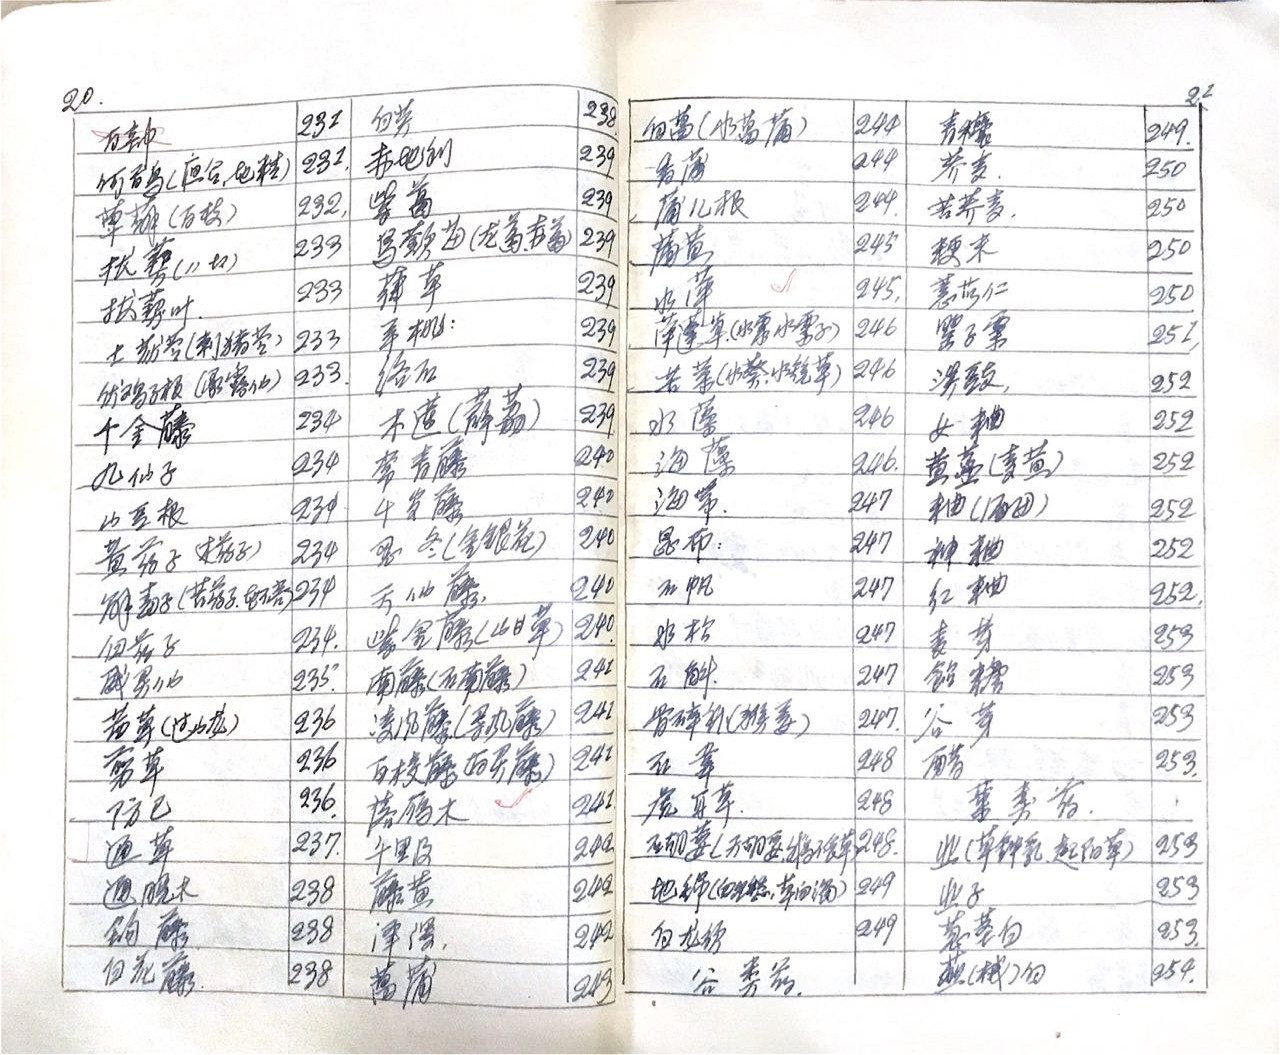 20.
百部 231
何首乌(        地精) 231.
萆薢(百枝) 232.
菝葜( 233
菝葜叶. 233
土茯苓(刺猪苓) 233
伏鸡子根(承露仙) 233.
千金藤 234
九仙子 234
山豆根 234
黄药子(木药子) 234
解毒子(苦药子. 234
白药子 234.
威灵仙 235
茜草(过山龙) 236
剪草 236
防己 236.
通草 237.
通脱木 238
钩藤 238
白花藤. 238
白英 238
赤地利 239
紫葛 239
乌蔹莓(龙葛.赤葛) 239
葎草 239
羊桃: 239
络石 239
木莲(薜荔) 239
常青藤 240
千岁藤 240
忍冬(金银花) 240
天仙藤. 240
紫金藤(山甘草) 240
南藤(石南藤) 241
清风藤(寻风藤) 241
百棱藤(百灵藤) 241
落雁木 241
千里及 242
藤黄 242
泽泻. 242
菖蒲 243
21
白菖(水菖蒲) 244
香蒲 244
蒲儿根 244.
蒲黄 245
水萍 245.
萍蓬草.(水粟.水粟子) 246
莕菜(水葵.水镜草) 246
水藻 246
海藻 246.
海带. 247
昆布: 247
石帆 247
水松 247
石斛. 247
骨碎补(猴姜) 247.
石韦 248
虎耳草. 248
石胡荽(天胡荽. 248.
地锦( 249
白龙须 249
谷类药.
青稞 249.
荞麦. 250
苦荞麦. 250
粳米 250
薏苡仁 250
罂子粟 251.
淡豉. 252
女曲 252
黄蒸(麦黄) 252
曲( 252
神曲 252
红曲 252.
麦芽 253
饴糖 253
谷芽 253
醋 253.
菜类药.
韭(草钟乳.起阳草) 253
韭子 253
葱茎白 253.
薤( )白 254.